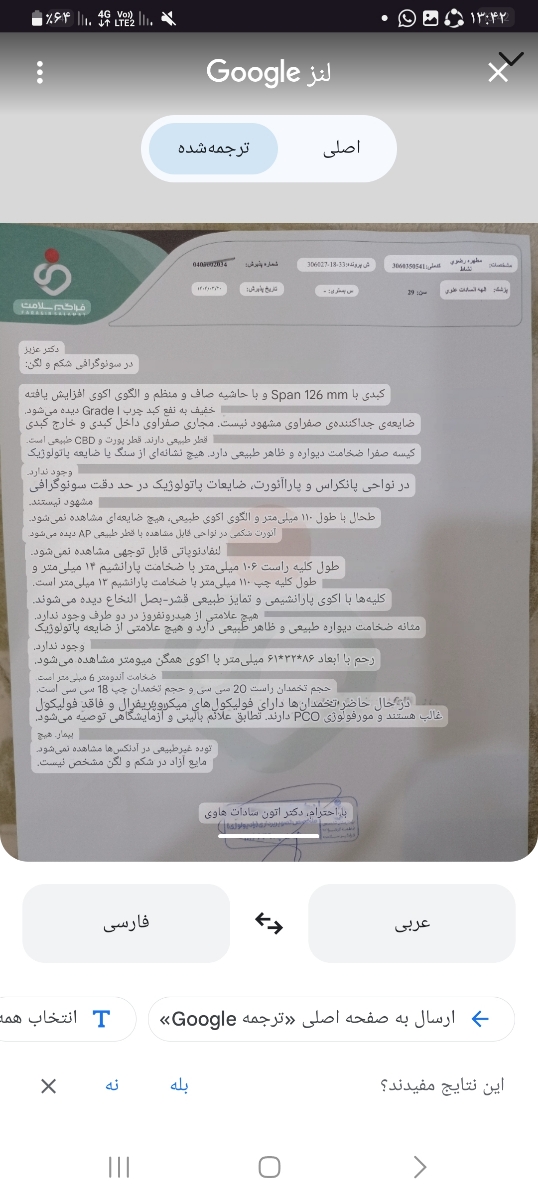 ٪۶۴ 4G Vo)) LTE2 ۱۳:۴۲
لنز Google
ترجمه‌شده اصلی
مشخصات: مطهره رضوی نشاط کدملی: 3060350541 ش پرونده: 33-18-306027 شماره پذیرش:
پزشک: الهه السادات علوی سن: 29 س بستری: - تاریخ پذیرش:
فراگیر سلامت
دکتر عزیز
در سونوگرافی شکم و لگن:
کبدی با Span 126 mm و با حاشیه صاف و منظم و الگوی اکوی افزایش یافته
خفیف به نفع کبد چرب Grade I دیده می‌شود.
ضایعه‌ی جداکننده‌ی صفراوی مشهود نیست. مجاری صفراوی داخل کبدی و خارج کبدی
قطر طبیعی دارند. قطر پورت و CBD طبیعی است.
کیسه صفرا ضخامت دیواره و ظاهر طبیعی دارد. هیچ نشانه‌ای از سنگ یا ضایعه پاتولوژیک
وجود ندارد.
در نواحی پانکراس و پاراآئورت، ضایعات پاتولوژیک در حد دقت سونوگرافی
مشهود نیستند.
طحال با طول ۱۱۰ میلی‌متر و الگوی اکوی طبیعی، هیچ ضایعه‌ای مشاهده نمی‌شود.
آئورت شکمی در نواحی قابل مشاهده با قطر طبیعی AP دیده می‌شود
لنفادنوپاتی قابل توجهی مشاهده نمی‌شود.
طول کلیه راست ۱۰۶ میلی‌متر با ضخامت پارانشیم ۱۴ میلی‌متر و
طول کلیه چپ ۱۱۰ میلی‌متر با ضخامت پارانشیم ۱۳ میلی‌متر است.
کلیه‌ها با اکوی پارانشیمی و تمایز طبیعی قشر-بصل النخاع دیده می‌شوند.
هیچ علامتی از هیدرونفروز در دو طرف وجود ندارد.
مثانه ضخامت دیواره طبیعی و ظاهر طبیعی دارد و هیچ علامتی از ضایعه پاتولوژیک
وجود ندارد.
رحم با ابعاد ۸۶*۳۲*۶۱ میلی‌متر با اکوی همگن میومتر مشاهده می‌شود.
ضخامت آندومتر 6 میلی‌متر است
حجم تخمدان راست 20 سی سی و حجم تخمدان چپ 18 سی سی است.
در حال حاضر تخمدان‌ها دارای فولیکول‌های میکروپریفرال و فاقد فولیکول
غالب هستند و مورفولوژی PCO دارند. تطابق علائم بالینی و آزمایشگاهی توصیه می‌شود.
بیمار. هیچ
توده غیرطبیعی در آدنکس‌ها مشاهده نمی‌شود.
مایع آزاد در شکم و لگن مشخص نیست.
با احترام، دکتر اتون سادات هاوی
فارسی عربی
ارسال به صفحه اصلی «ترجمه Google» انتخاب همه
این نتایج مفیدند؟ بله نه